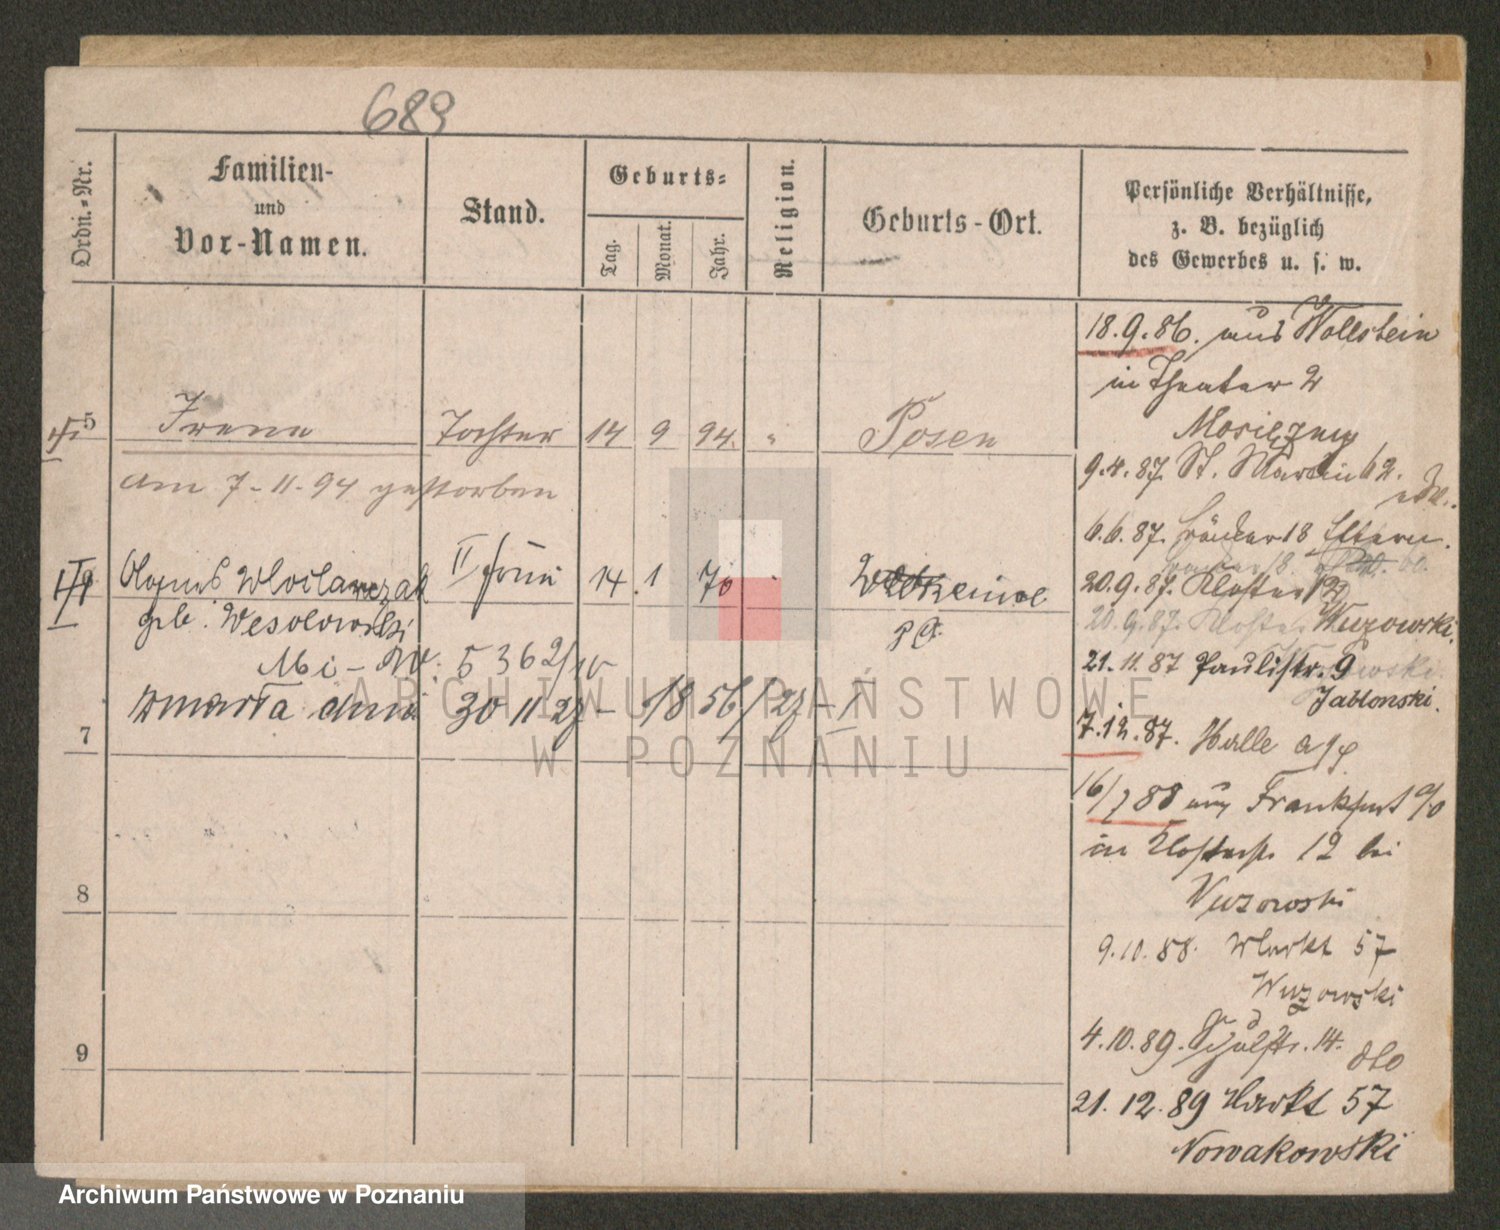 689
Ordn.-Nr.
Familien-
und
Vor-Namen.
Stand.
Geburts-
Tag.
Monat.
Jahr.
Religion.
Geburts-Ort.
Persönliche Verhältnisse,
z. B. bezüglich
des Gewerbes u. s. w.
5 Irene Tochter 14 9 94. " Posen
am 7-11-94 gestorben
II Frau 14. 1 70
geb. Wesolowski
5362/10
zmarła dnia 30 11 27 - 1856/27 - I
7
8
9
18.9.86. aus Wollstein
in Theater 2
9.4.87. St. Martin 62.
6.6.87. 18 Eltern.
20.9.87. Kloster 12
Wuzowski.
21.11.87 Paulistr. 9
Jablonski.
7.12.87. Halle a/S
16/7 88 aus Frankfurt a/O
in Klosterstr. 12 bei
Wuzowski
9.10.88. Markt 57
Wuzowski
4.10.89. Schulstr. 14. dto
21.12.89 Markt 57
Nowakowski
ARCHIWUM PAŃSTWOWE
W POZNANIU
Archiwum Państwowe w Poznaniu